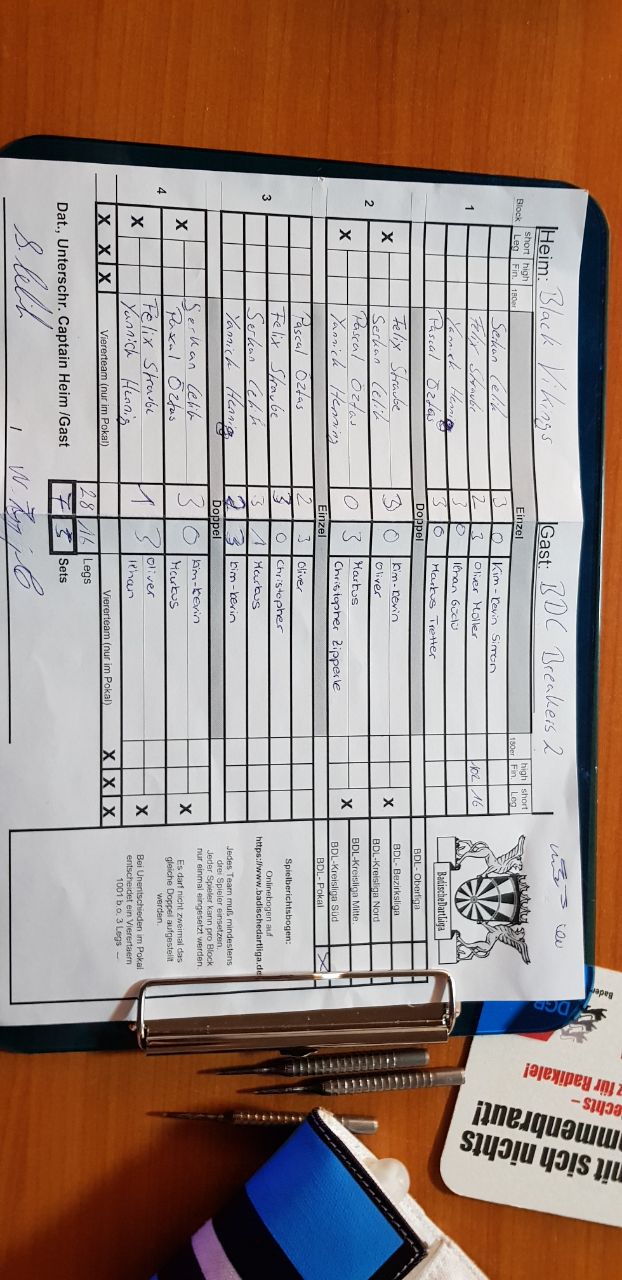 Heim: Black Vikings Gast: BDC Breakers 2
Block short Leg high Fin. 180er Einzel 180er high Fin. short Leg
1 Serkan Celik 3 0 Kim-Kevin Simon
Felix Straube 2 3 Oliver Müller 102 16
Yannick Hennig 3 0 Ilhan
Pascal Öztas 3 0 Markus Tretter
Doppel
2 X Felix Straube 3 0 Kim-Kevin X
Serkan Celik Oliver
X Pascal Öztas 0 3 Markus X
Yannick Henning Christopher Zipperle
Einzel
3 Pascal Öztas 2 3 Oliver
Felix Straube 3 0 Christopher
Serkan Celik 3 1 Markus
Yannick Hennig 2 3 Kim-Kevin
Doppel
4 X Serkan Celik 3 0 Kim-Kevin X
Pascal Öztas Markus
X Felix Straube 1 3 Oliver X
Yannich Hennig Ilhan
X X X Viererteam (nur im Pokal) Viererteam (nur im Pokal) X X X
28 16 Legs
Dat., Unterschr. Captain Heim /Gast 7 5 Sets
Badischedartliga
BDL- Oberliga
BDL- Bezirksliga
BDL-Kreisliga Nord
BDL-Kreisliga Mitte
BDL-Kreisliga Süd
BDL- Pokal X
Spielberichtsbogen:
Onlinebogen auf
https://www.badischedartliga.de
Jedes Team muß mindestens
drei Spieler einsetzen.
Jeder Spieler kann pro Block
nur einmal eingesetzt werden
Es darf nicht zweimal das
gleiche Doppel aufgestellt
werden.
Bei Unentschieden im Pokal
entscheidet ein Viererteam
1001 b.o. 3 Legs
DGB
Bade
für Radikale!
echts –
mit sich nichts
mmenbraut!